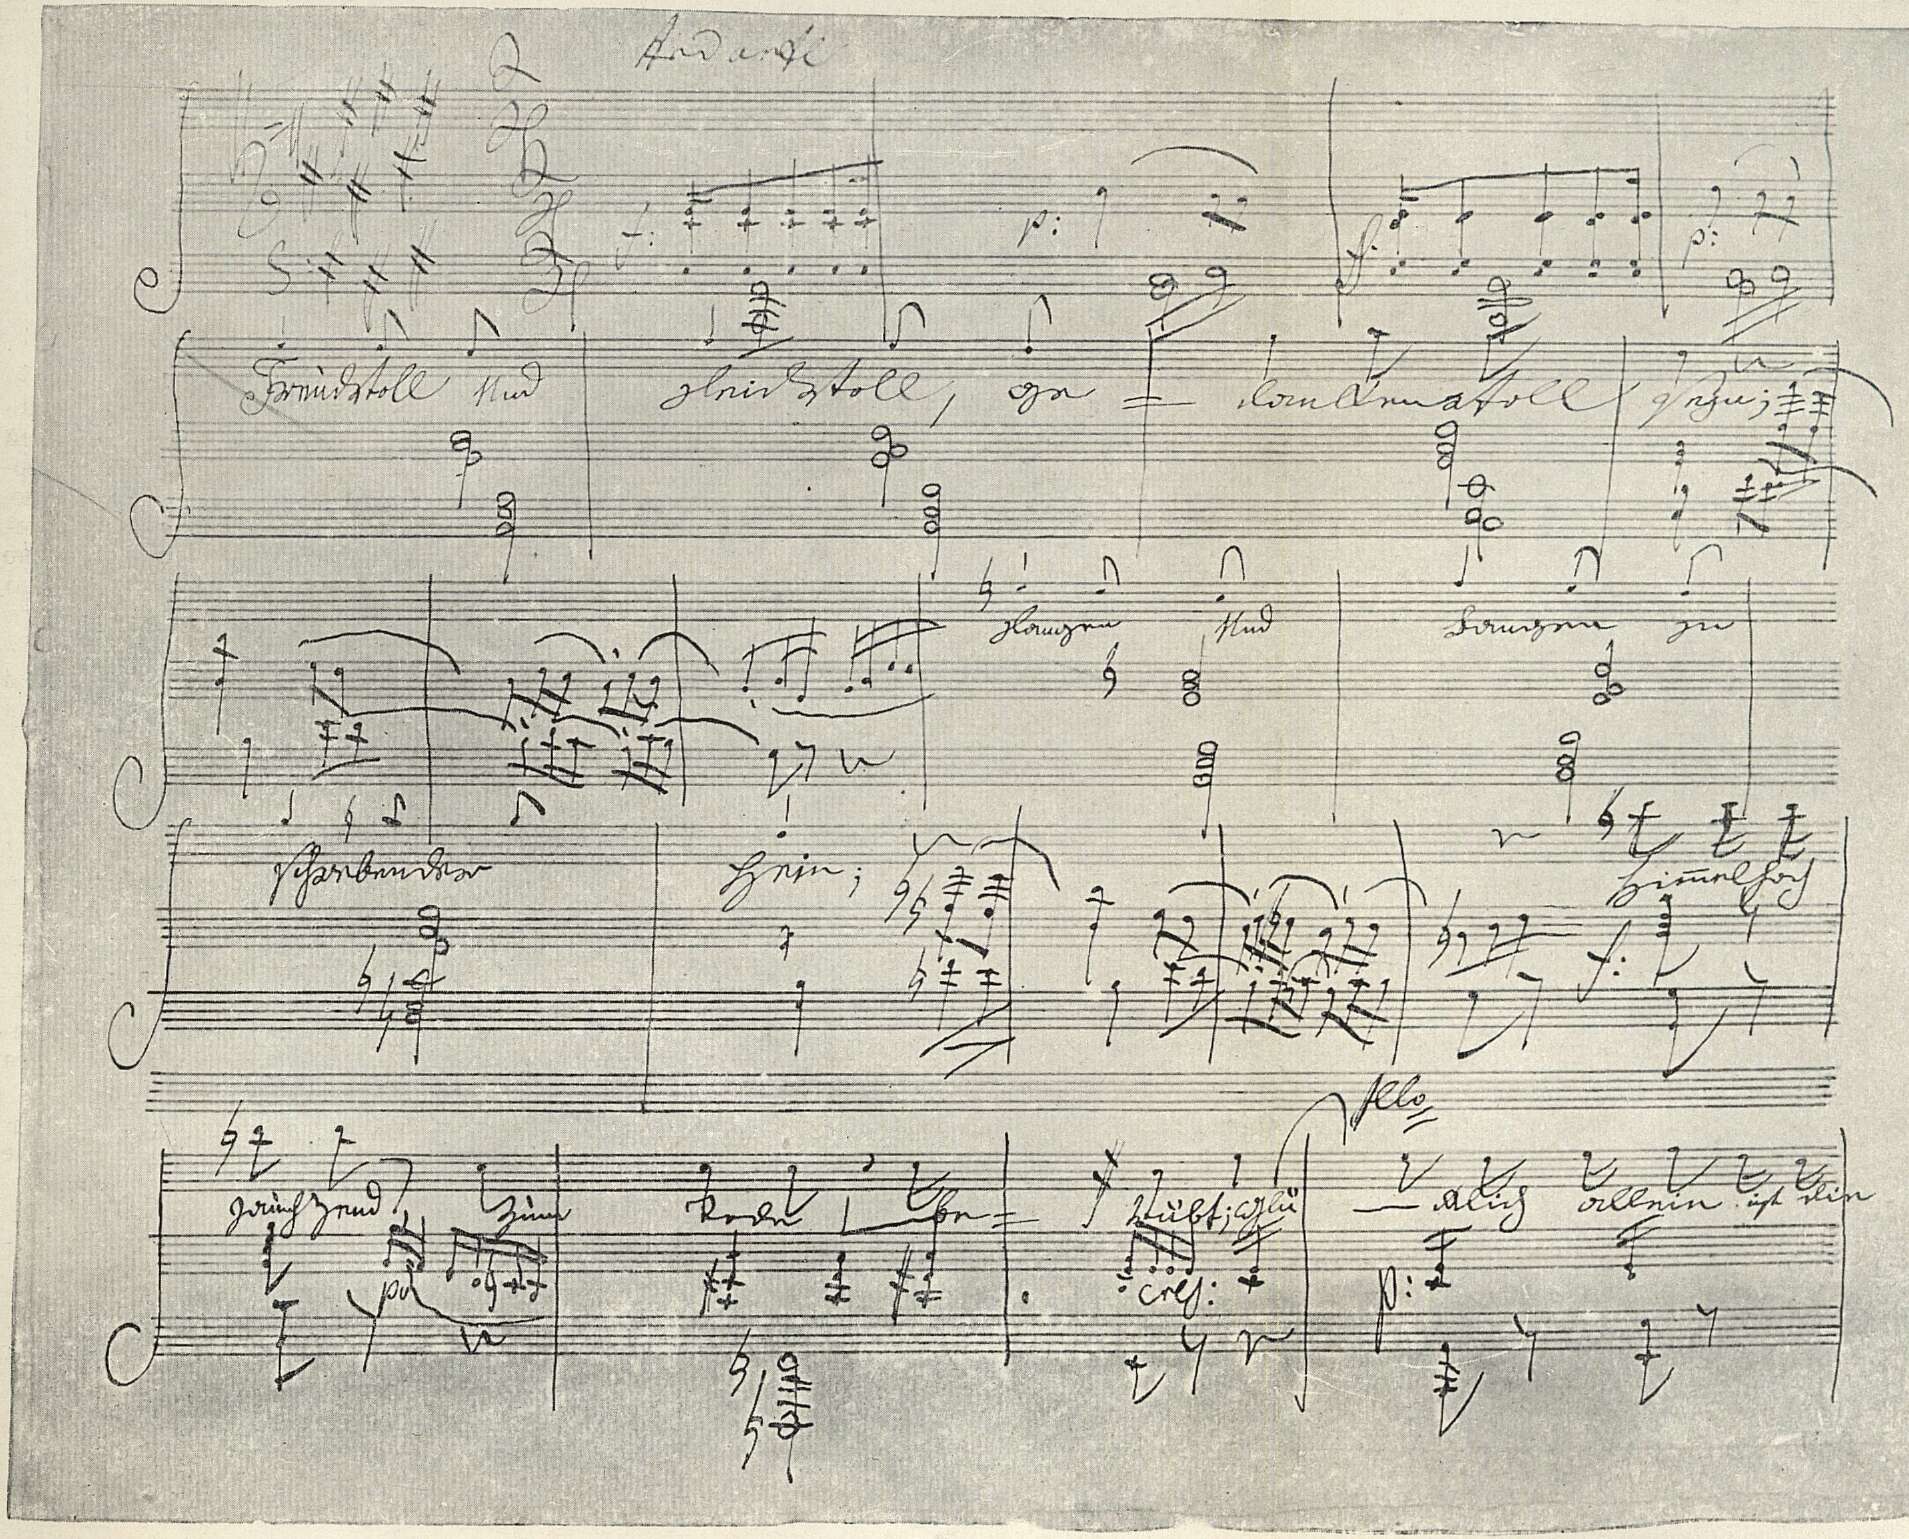 Andante
f: p: f: p:
Freudvoll und leidvoll, ge = dankenvoll seyn;
langen und bangen in
schwebender Pein;
Himmelhoch
f:
Allo
jauchzend zum Tode be = trübt; glü — cklich allein ist die
p: cresc: p: